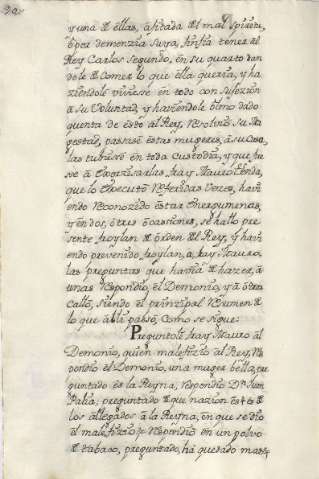 y una de ellas, asitada del mal spiritu,
ò por demenzia suya, finfia tener al
Rey Carlos segundo, en su quarto dan
dole de comer lo que ella queria, y ha
ziendole viniese en todo con sufezion
a su Voluntad, y haviendole ultimo dado
quenta de esto al Rey, Resolvio su Ma
gestad, passase estas mugeres, à su Casa,
las tubiese en toda Custodia, y que fue
se à Exorzisarlas fray Mauro Tenda,
que lo Executo Repetidas Vezes, havi
endo Reconozido estar Energumenas,
y en dos, ò tres ocasiones, se hallo pre
sente froylan de orden del Rey, y havi
endo prevenido froylan, a fray Mauro,
las preguntas que havia de hazer, à
unas Respondio, el Demonio, y à otras
Callò, siendo el prinzipal Resumen de
lo que alli passò, Como se sigue:
Preguntole fray Mauro al
Demonio, quien malefizio al Rey, Res
pondio el Demonio, una muger bella, pre
guntado es la Reyna, Respondio Dª Juan
Palia; preguntado de que nazion es de
los allegados à la Reyna, en que se dio
el malefizio Respondio en un polvo
de tabaco, preguntado, há quedado mas